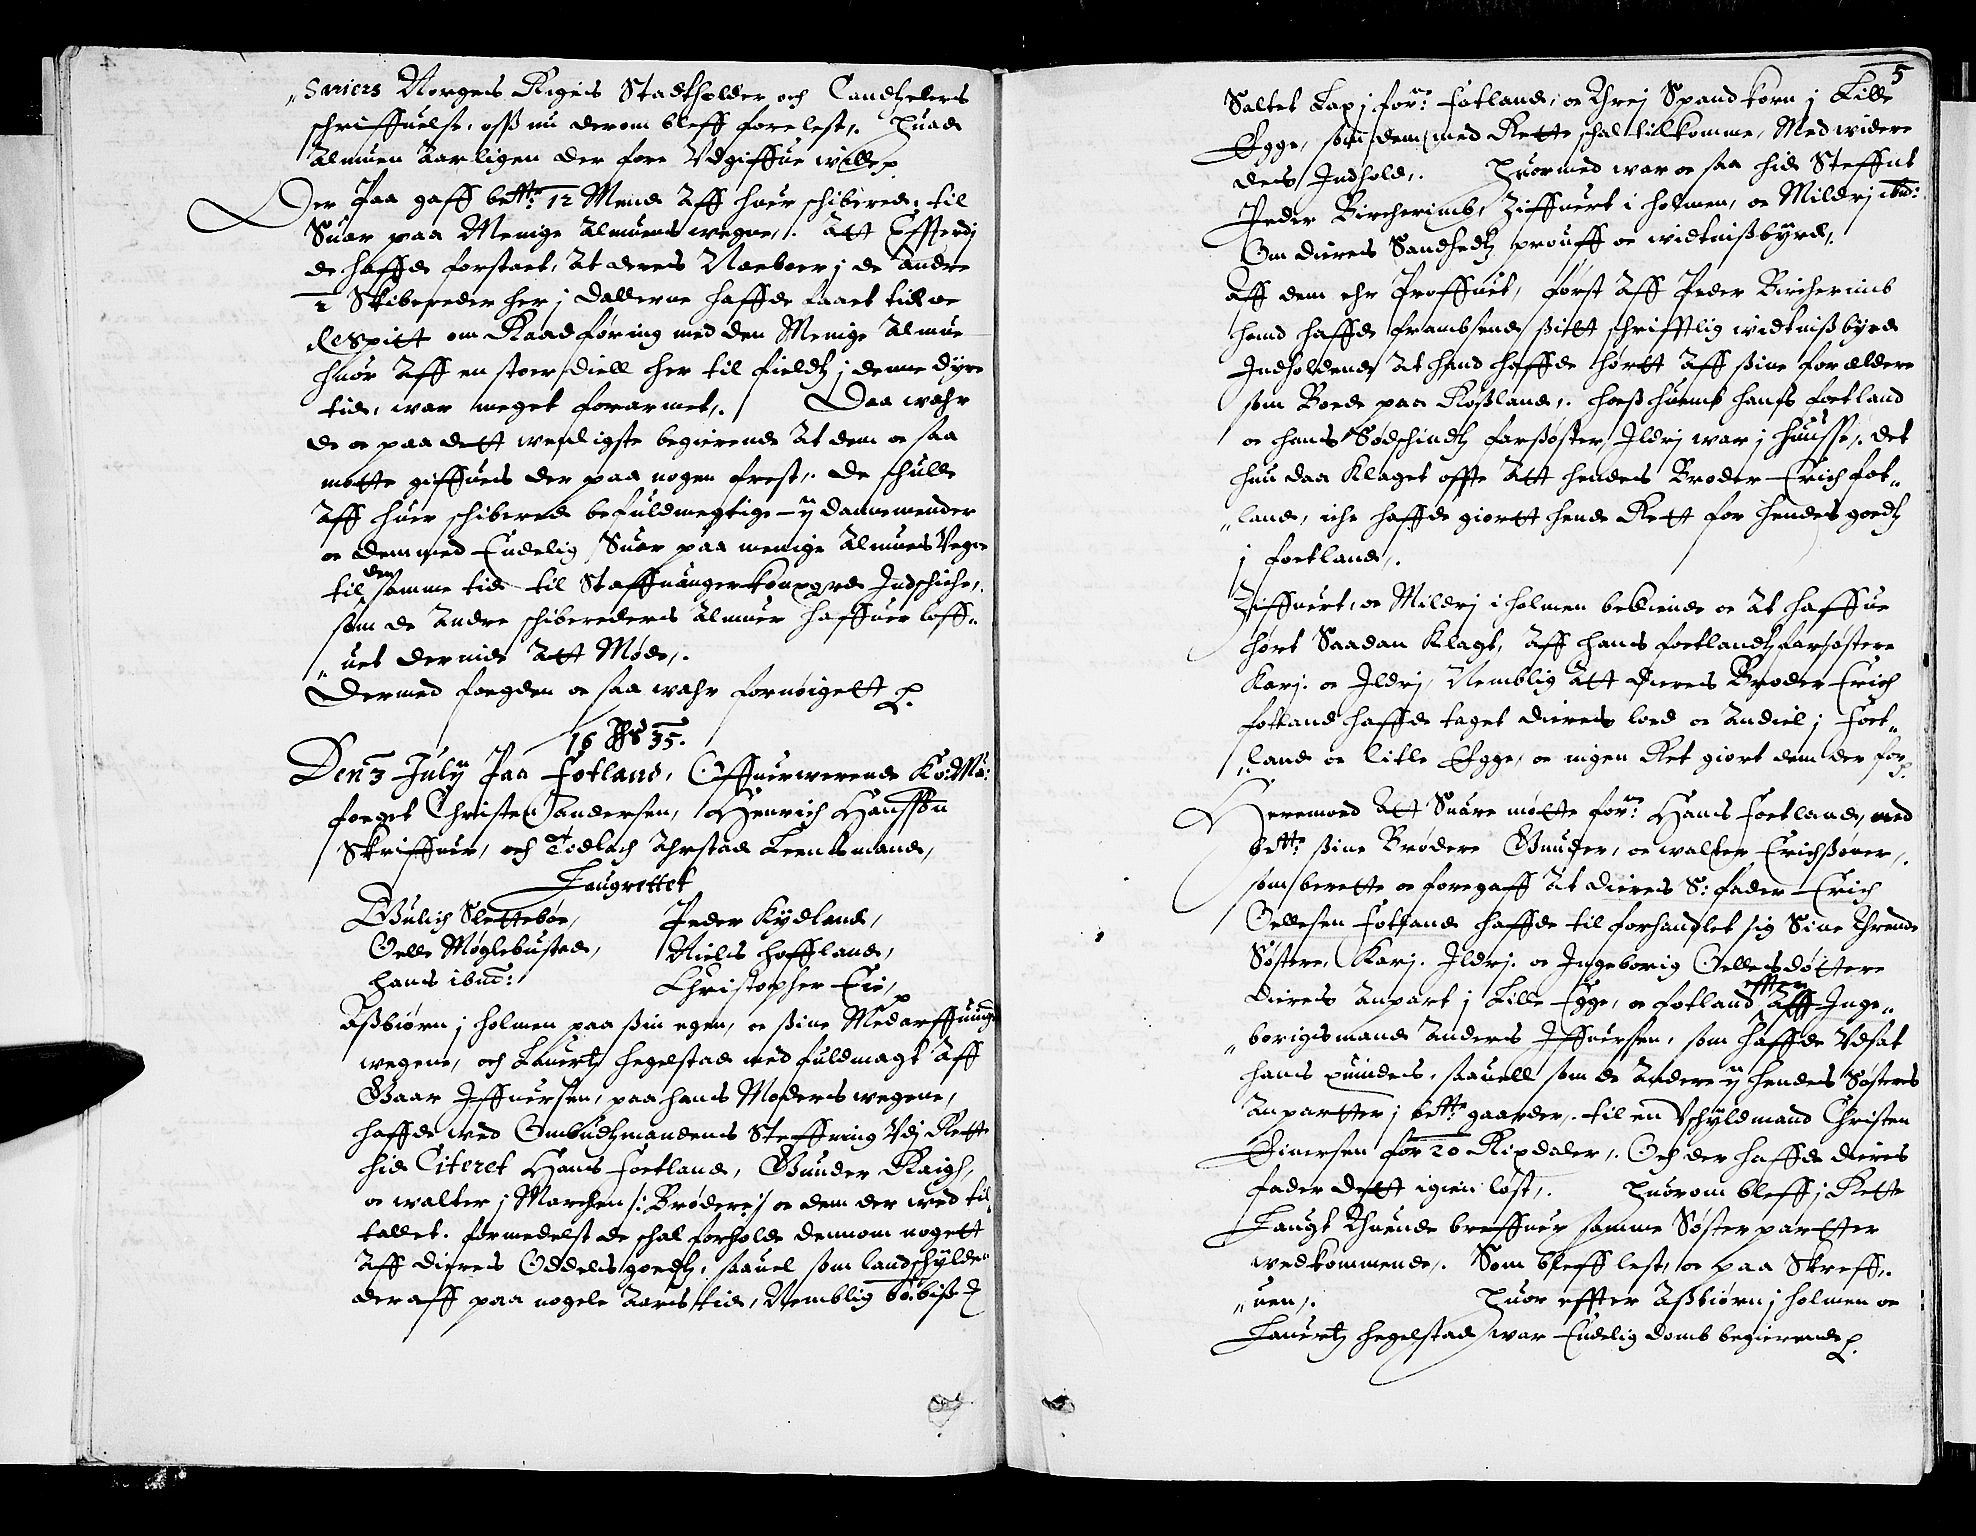 „sniers Norges Rigis Stadtholder och Candtzelers
schriffuelse, oss nu derom bleff forelest,. huad
Almuen Aarligen der fore Vdgiffue wille,
Der Paa gaff bettr: 12 Mend Aff huer schiberede, til
Suar paa Menige Almuens wegne,. Att Effterdj
de haffde forstaet, At deris Naeboer j de Andre
2 Skibereder her j Dallerne haffde taaet tid oc
Respitt om Raadføring med den Menige Almue
huor Aff en stoer diell her til fieldtz j denne dyre
tid, war meget forarmet,. Daa wahr
de oc paa dett wenligste begierende At dem oc saa
motte giffues der paa nogen frest,. de schulle
Aff huer schiberede befuldmegtige ij dannemender
oc dem med Endelig Suar paa menige Almues Vegne
til den samme tid til Staffuanger kongsgrd Indschiche,.
som de Andre schibereders Almuer haffuer loff„
„uet dermed Att Møde,.
Dermed fogden oc saa wahr fornøigett
16 35.
Den 3 Julij Paa Fotland, Offuerwerende Ko: Ma:
foeget Christen Andersen, Henrich Hanssøn
Skriffuer, och Todlach Ahrstad Leensmand,
Laugrettet
Gulich Slettebøe, Peder Kydland,
Oelle Møglebustad, Niels Haffland,
Hans ibnd: Christopher Eie,
Assbiørn j Holmen paa sin egen, oc sine Medarffuings
wegene, och Lauertz Hegelstad med fuldmagt Aff
Gaar Iffuersen, paa hans Moders wegene,
haffde med Ombudtzmandens Steffning Vdj Rette
hid Citeret Hans Foetland, Gunder Raigh,
oc walter j Marchen /: Brødere :/ oc dem der med til
tallet. formedelst de schal forholde dennom nogett
Aff dieris Oddels goedtz, saauel som landschylden
der aff paa nogele Aars tid, Nemblig bø: biss
5
Saltet Lax j for:ne Fotland, oc threj Spand korn j Lille
Egge, som dem med Rette schal tilkomme, Med widere
des Indhold,. huormed war oc saa hid Steffnt
Peder Bircherimb, Ziffuert i holmen, oc Mildrj ibid:
Om dieris Sandhedtz prouff oc widtnissbyrd,.
Aff dem ehr Proffuet, først Aff Peder Bircherimb
hand haffde frambsendt sitt schrifftlig widtnissbyrd
Indholdend At hand haffde hørtt Aff sine forældere
som Boede paa Rossland,. hoess huemb hanss Foetland
oc hans Sødschindtz farsøster Ildrj war j huusse,. det
hun daa klaget offte Att hendes Broder Erich Fot„
„land, iche haffde giortt hende Rett for hendes goedtz
j Foetland,.
Ziffuert, oc Mildrj i holmen bekiende oc At haffue
hørt Saadan klagt, Aff hans Foetlandtz farsøstere
Karj. oc Ildrj, Nemblig Att dieris Broder Erich
Fotland haffde taget dieris loed oc Andiel j Foet„
„land oc litle Egge, oc ingen Ret giort dem der for
Heremoed Att Suare møtte for:ne Hans Foetland, med
bettr: sine Brødere Gunder, oc walter Erichsøner,.
som berette oc foregaff At dieris S: fader Erich
Oellesen Fotland haffde til forhandlet sig Sine Thrende
Søstere, Karj. Ildrj. oc Ingeborig Oellesdøttere
dieris Anpart j Lille Egge, oc Fotland effter Aff Inge„
„borigs mand Anders Iffuersen, som haffde Vdsat
hans quindes, saauell som de Andere ij hendes Søsteres
Anpartter j bettr gaarder,. til en Vschyldmand Christen
Einersen for 20 Rixdaler,. Och der haffde dieris
fader dett igien løst,. huorom bleff j Rette
Laugt thuende breffuer samme Søsterpartter
wedkommende,. Som bleff lest, oc paa Skreff„
„uen,. huor effter Assbiørn j holmen oc
Lauertz Hegelstad war Endelig domb begierende